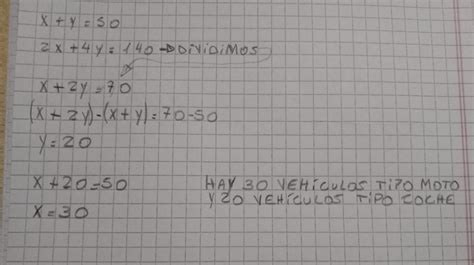 x+y=50
2x+4y=140→DIVIDIMOS
x+2y=70
(x+2y)-(x+y)=70-50
y=20
x+20=50
x=30
HAY 30 VEHíCULOS TIPO MOTO
Y 20 VEHíCULOS TIPO COCHE